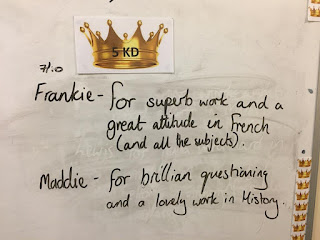 5 KD
7/10
Frankie - for superb work and a
great attitude in French
(and all the subjects).
Maddie - for brillian questioning
and a lovely work in History.